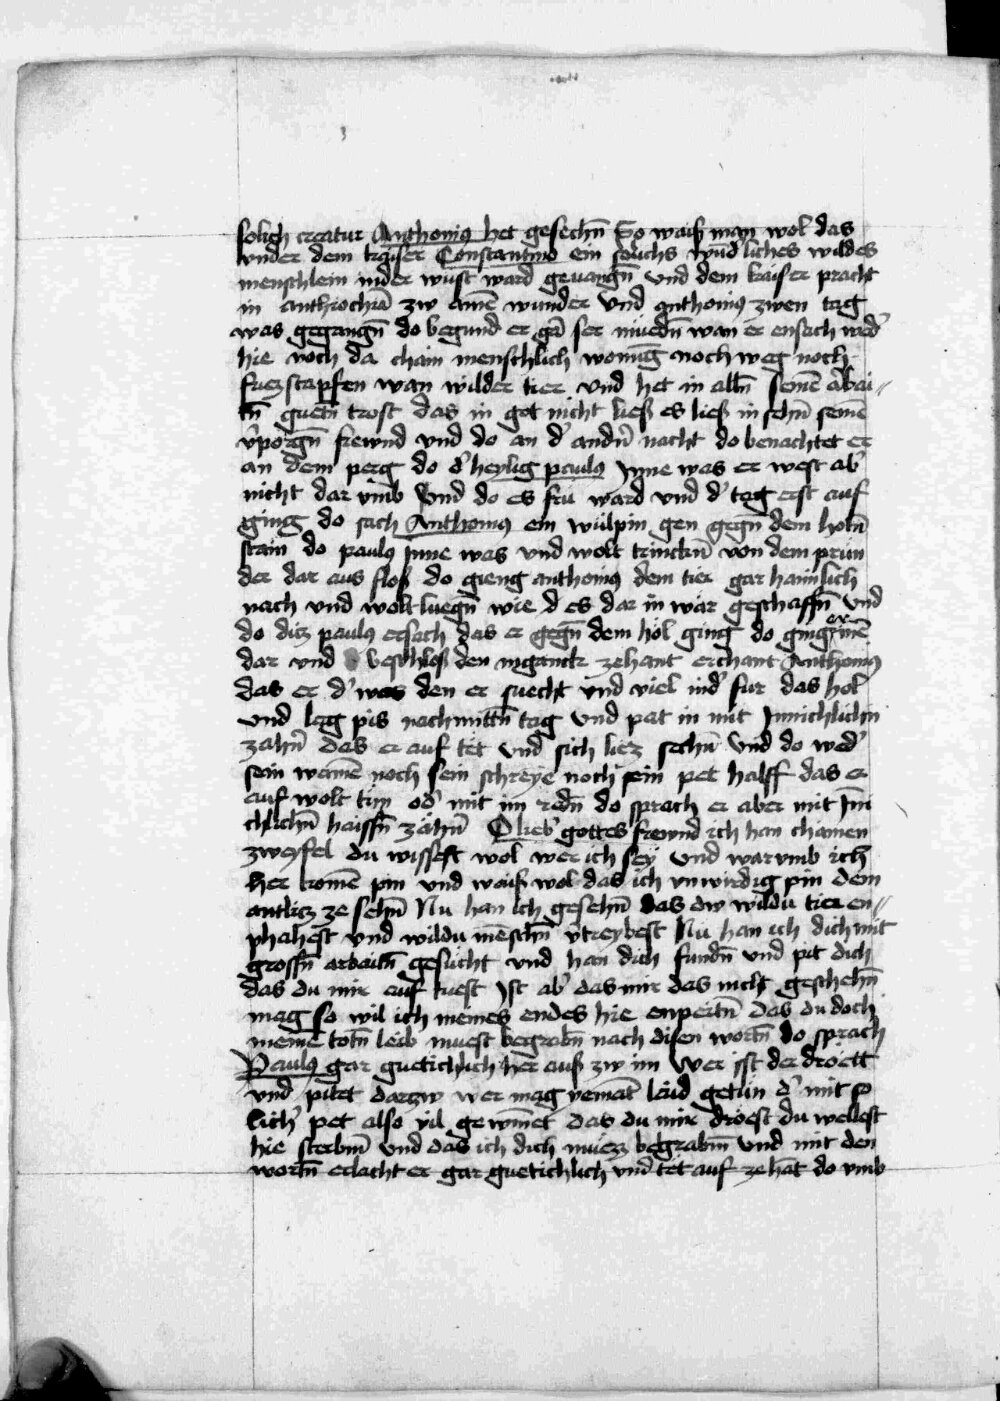 solich creatur Anthonius het gesechn̄ So waiß man wol das
vnder dem kaiser Constantino ein sölichs wūd͛liches wildes
menschlein in der wüst ward geuangn̄ vnd dem kaiser pracht
in anthiochiā zw ainē wunder Vnd anthonius zwen tag
was gegangn̄ do begund er gar ser müedn̄ wan er ensach wed͛
hie noch da chain menschlich wonūg noch weg noch
fuezstapfen wan wilder tier vnd het in alln̄ seinē arbai⸗
tn̄ guetn̄ trost das in got nicht ließ es ließ in sehn̄ seinē
v͛porgn̄ frewnd vnd do an d͛ andn̄ nacht do benachtet er
an dem perg do d͛ heylig paulus Inne was er west ab͛
nicht dar vmb Vnd do es fru ward vnd d͛ tag erst auf
ging do sach Anthonius ein wülpin gen gegn̄ dem holn̄
stain do paulus Inne was vnd wolt trinckn̄ von dem prün
der dar aus floß do gieng anthonius dem tier gar haimlich
nach vnd wolt luegn̄ wie d es dar in wär geschaffn̄ vnd
do ditz paulus ersach das er gegn̄ dem hol ging do ging er inē
dar vnd beschloß den inganck zehant erchant Anthonius
das er d͛ was den er suecht vnd viel nid͛ fur das hol
vnd lag pis nach mittn̄ tag vnd pat in mit Innichlichn̄
zähn̄ das er auf tët vnd sich liez sehn̄ Vnd do wed͛
sein wainē noch sein schreyē noch sein pet halff das er
auf wolt tün od͛ mit im redn̄ do sprach er aber mit Inni
chlichn̄ haissn̄ zähn̄ O lieb͛ gottes frewnd ich han chainen
zweyfel du wissest wol wer ich seÿ Vnd warvmb ich
her komē pin vnd waiß wol das ich vnwirdig pin dem
antlicz ze sehn̄ Nu han ich gesehn̄ das dw wildu tier en⸗
phahest vnd wildu mēschn̄ v͛treybest Nu han ich dich mit
grossn̄ arbaitn̄ gesücht vnd han dich fundn̄ vnd pit dich
das du mir auf tuest Ist ab͛ das mir das nicht geschehn̄
mag so wil ich meines endes hie enpeitn̄ das du doch
meinē totn̄ leib muest begrabn̄ nach disen wortn̄ do sprach
Paulus gar guetichlich her auß zw im Wer ist der droett
vnd pitet darzw wer mag yemāt laid getün d͛ mit so
lich͛ pet also vil gewinet das du mir dröest du wellest
hie sterbm̄ vnd das ich dich muezz begrabm̄ vnd mit den
wortn̄ erlacht er gar guetichlich vnd tët auf zehāt do vmb